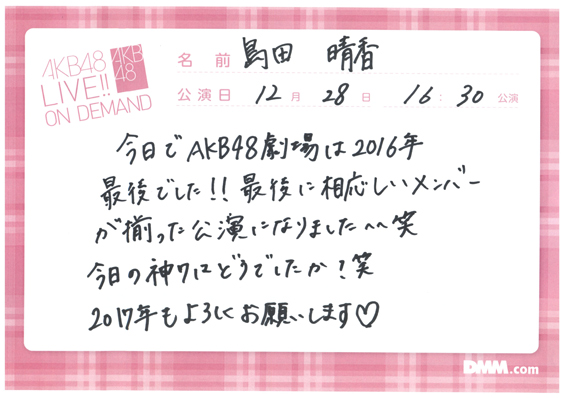 AKB48
LIVE!!
ON DEMAND
AKB
48
名前 島田 晴香
公演日 12月 28日 16:30公演
今日でAKB48劇場は2016年
最後でした!!最後に相応しいメンバー
が揃った公演になりました〜〜笑
今日の神7はどうでしたか?笑
2017年もよろしくお願いします♡
DMM.com